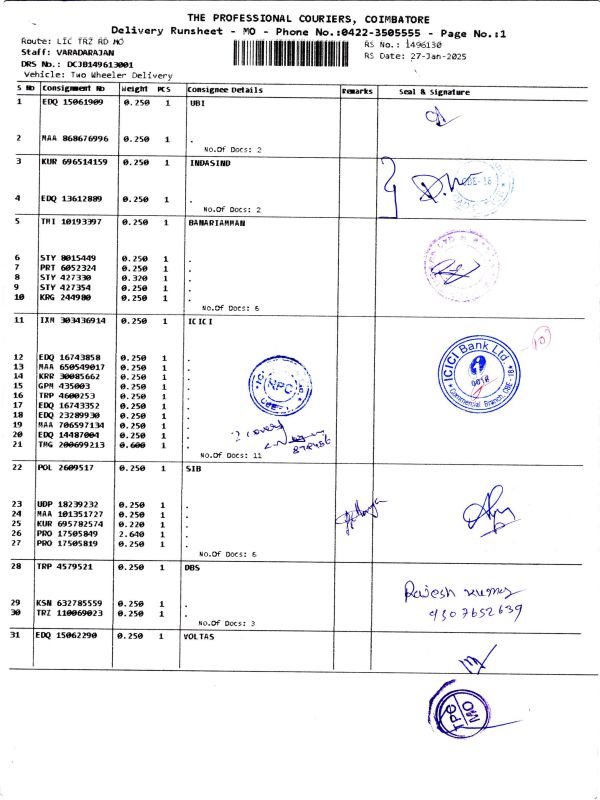 THE PROFESSIONAL COURIERS, COIMBATORE
Delivery Runsheet - MO - Phone No.:0422-3505555 - Page No.:1
Route: LIC TRZ RD MO
RS No.: 1496130
Staff: VARADARAJAN
RS Date: 27-Jan-2025
DRS No.: DCJB149613001
Vehicle: Two Wheeler Delivery
S No Consignment No Weight PCS Consignee Details Remarks Seal & Signature
1 EDQ 15061909 0.250 1 UBI
2 MAA 868676996 0.250 1 .
No.Of Docs: 2
3 KUR 696514159 0.250 1 INDASIND
CBE-18
4 EDQ 13612889 0.250 1 .
No.Of Docs: 2
5 TMI 10193397 0.250 1 BANARIAMMAN
6 STY 8015449 0.250 1 .
7 PRT 6052324 0.250 1 .
8 STY 427330 0.320 1 .
9 STY 427354 0.250 1 .
10 KRG 244980 0.250 1 .
No.Of Docs: 6
11 IXM 303436914 0.250 1 ICICI
10
ICICI Bank Ltd.
0018
Commercial Branch, CBE-18
12 EDQ 16743858 0.250 1 .
13 MAA 650549017 0.250 1 .
14 KRR 30085662 0.250 1 .
NPC
15 GPM 435003 0.250 1 .
16 TRP 4600253 0.250 1 .
17 EDQ 16743352 0.250 1 .
18 EDQ 23289930 0.250 1 .
19 MAA 706597134 0.250 1 .
20 EDQ 14487004 0.250 1 .
21 TMG 200699213 0.600 1 .
No.Of Docs: 11
22 POL 2609517 0.250 1 SIB
23 UDP 18239232 0.250 1 .
24 MAA 101351727 0.250 1 .
25 KUR 695782574 0.220 1 .
26 PRO 17505849 2.640 1 .
27 PRO 17505819 0.250 1 .
No.Of Docs: 6
28 TRP 4579521 0.250 1 DBS
Rajesh Kumar
9307652639
29 KSN 632785559 0.250 1 .
30 TRZ 110069023 0.250 1 .
No.Of Docs: 3
31 EDQ 15062290 0.250 1 VOLTAS
TPC
MO